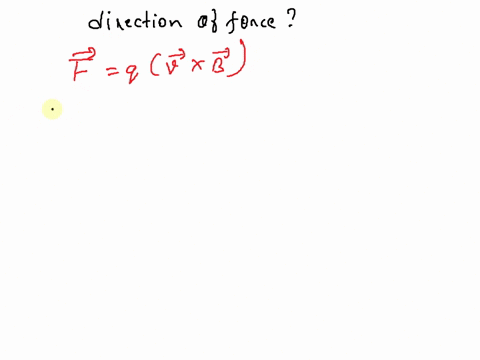 direction of force ?
F⃗ = q (v⃗ × B⃗)